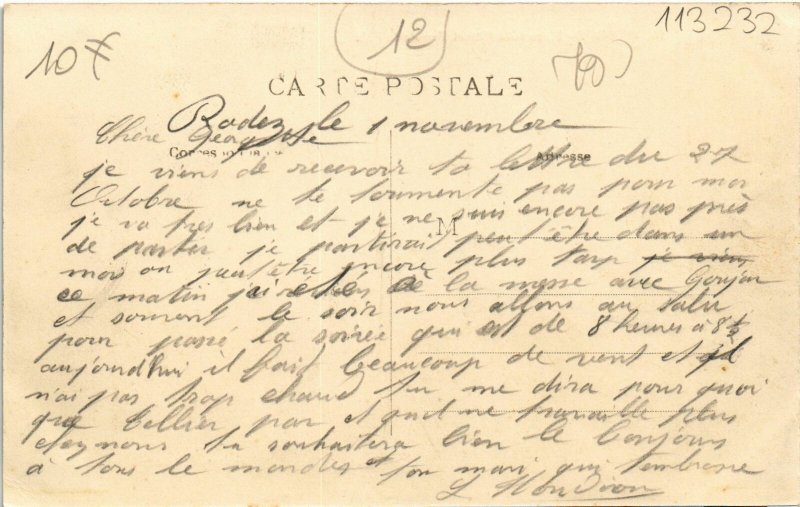 113232
12
10 F
CARTE POSTALE
Rodez le 1 novembre
Chère Georgette
Adresse
je viens de recevoir ta lettre du 27
Octobre ne te tourmente pas pour moi
je va tres bien et je ne suis encore pas près
M
de partir je partirai peut être dans un
mois ou peut être encore plus tarp je viens
ce matin j'ai été à la messe avec Goujon
et souvent le soir nous allons au salu
pour passé la soirée qui est de 8 heures à 8 ½
aujourd'hui il fait beaucoup de vent et
n'ai pas trop chaud tu me dira pour quoi
que Tellier par et quil ne travaille plus
chez nous tu souhaitera bien le bonjour
à tous le mondes et ton mari qui t'embrasse